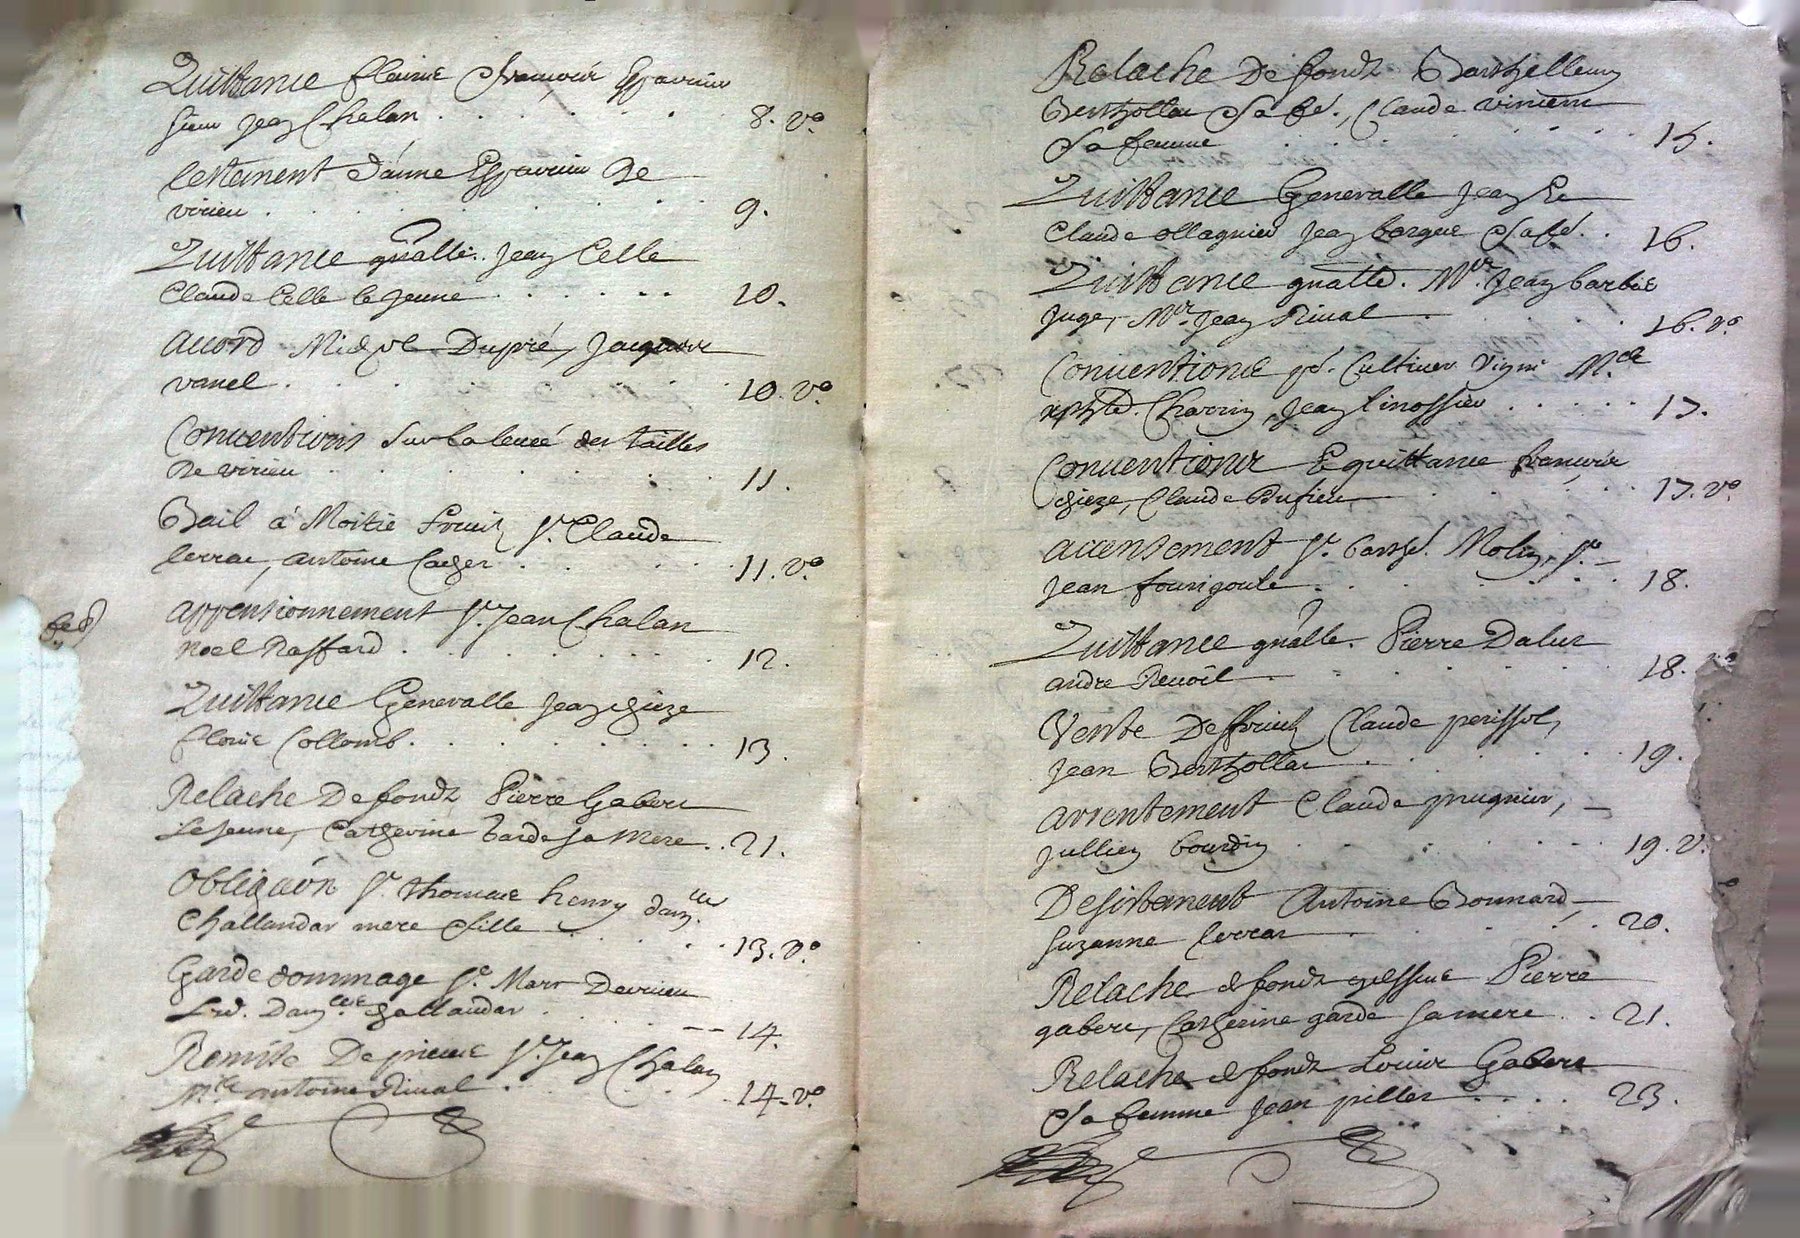 Quittance fleurie & francois Esparvier
Sieur Jean Chalan . . . . . . 8. v°.
Testament d'anne Esparvier De
virieu . . . . . . . 9.
Quittance gnâlle. Jean Celle
Claude Celle le jeune . . . . . 10.
accord Michel Dupré, Jacques
vanel . . . . . . 10. v°.
Conventions sur la levée des tailles
De virieu . . . . . . 11.
Bail à Moitié fruit Sr. Claude
Terrac, antoine . . . . . 11. v°.
appensionnement Sr. Jean Chalan
noel Raffard . . . . . . 12.
Quittance Generalle Jean chieze
florie Collomb . . . . . . 13.
Relache De fondz Pierre Gabert
Le Jeune, Catherine barde sa mere . . 21.
Obligaôn Sr. thomme henry dam.lles
Challandar mere & fille . . . . . 13. v°.
Garde dommage Sr. Marc Devirieu
Led. Dam.lle challandar . . . . -- 14.
Remise De Sr. Jean Chalan
Mre. antoine Rival . . . . . 14. v°.
Relache De fondz Barthellemy
Berthollon & sa fe., Claude
Sa femme . . . . . . 15.
Quittance Generalle Jean &
Claude ollagnier Jean bergue & sa fe. . . 16.
Quittance gnalle. Mre. Jean barbié
Juge, Mre. Jean Rival . . . . 16. v°
Conventions pr. Cultiver Vigne Mre
xpstle. Charrin, Jean linossier . . . . . 17.
Conventions & quittance francois
chieze, Claude Dufieu . . . . 17. v°.
accensement Sr. barthé. Molin, Sr. —
Jean fourigoule . . . . . . 18.
Quittance gnâlle. Pierre Daluz
andre Revoil . . . . . . 18. v°
Vente De fruit Claude perissol,
Jean Berthollon . . . . . . 19.
arrentement Claude prugnier, —
Jullien bourdin . . . . . . 19. v.
Desistement Antoine Bonnard, —
Suzanne Terrac . . . . . . 20.
Relache de fondz Pierre
gabert, Catherine garde sa mere . . 21.
Relache de fondz Louis Gabert
& sa femme Jean piller . . . . 23.